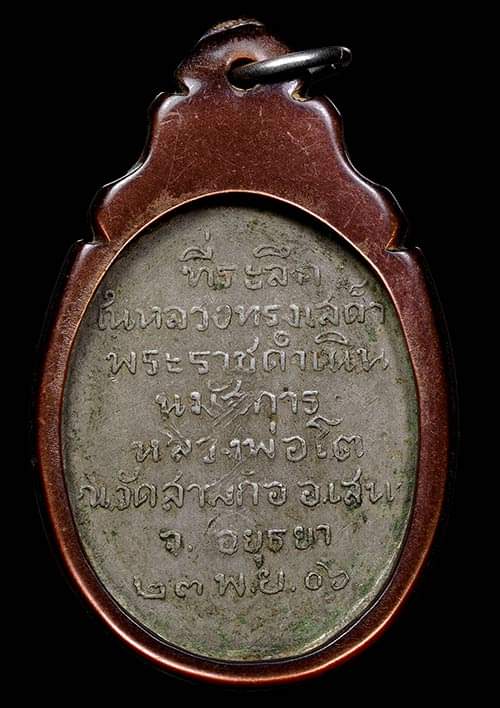 ที่ระลึก
ในหลวงทรงเสด็จ
พระราชดำเนิน
นมัสการ
หลวงพ่อโต
ณวัดสามกอ อ.เสนา
จ. อยุธยา
๒๓ พ.ย. ๐๖